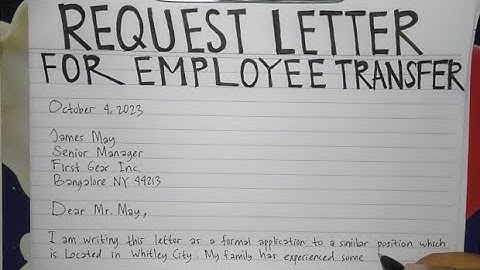 REQUEST LETTER
FOR EMPLOYEE TRANSFER
October 4, 2023
James May
Senior Manager
First Gear Inc.
Bangalore NY 44213
Dear Mr. May,
I am writing this letter as a formal application to a similar position which
is Located in Whitley City. My family has experienced some